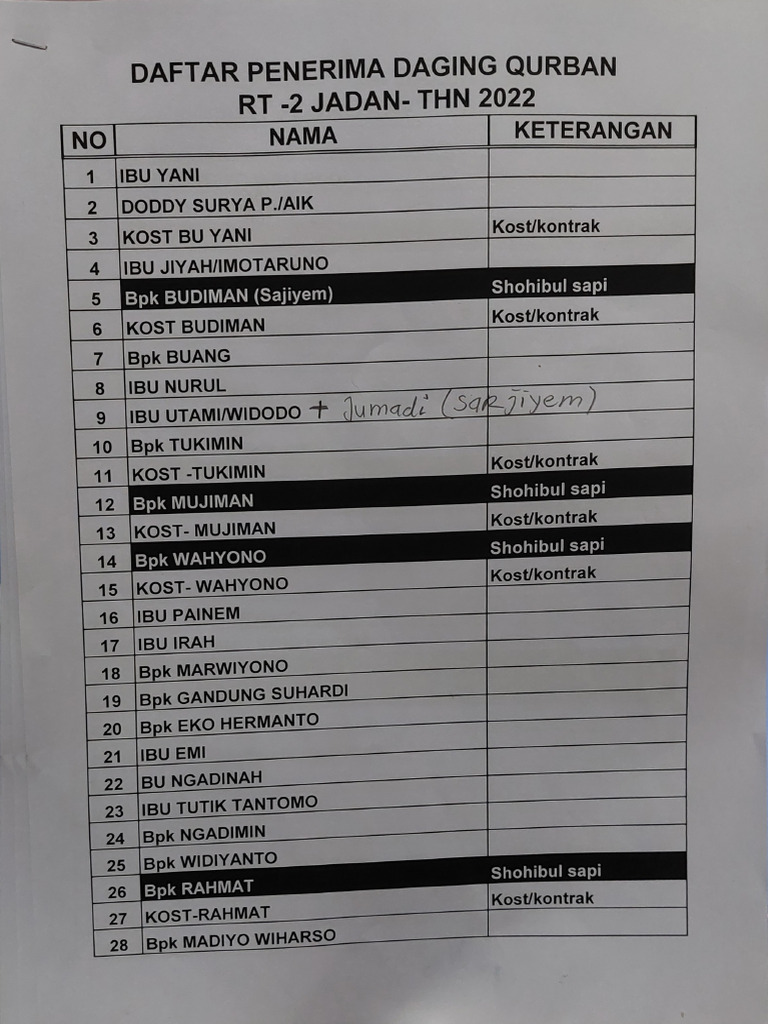 DAFTAR PENERIMA DAGING QURBAN
RT -2 JADAN- THN 2022
NO NAMA KETERANGAN
1 IBU YANI
2 DODDY SURYA P./AIK
3 KOST BU YANI Kost/kontrak
4 IBU JIYAH/IMOTARUNO
5 Bpk BUDIMAN (Sajiyem) Shohibul sapi
6 KOST BUDIMAN Kost/kontrak
7 Bpk BUANG
8 IBU NURUL
9 IBU UTAMI/WIDODO + Jumadi (sarjiyem)
10 Bpk TUKIMIN
11 KOST -TUKIMIN Kost/kontrak
12 Bpk MUJIMAN Shohibul sapi
13 KOST- MUJIMAN Kost/kontrak
14 Bpk WAHYONO Shohibul sapi
15 KOST- WAHYONO Kost/kontrak
16 IBU PAINEM
17 IBU IRAH
18 Bpk MARWIYONO
19 Bpk GANDUNG SUHARDI
20 Bpk EKO HERMANTO
21 IBU EMI
22 BU NGADINAH
23 IBU TUTIK TANTOMO
24 Bpk NGADIMIN
25 Bpk WIDIYANTO
26 Bpk RAHMAT Shohibul sapi
27 KOST-RAHMAT Kost/kontrak
28 Bpk MADIYO WIHARSO